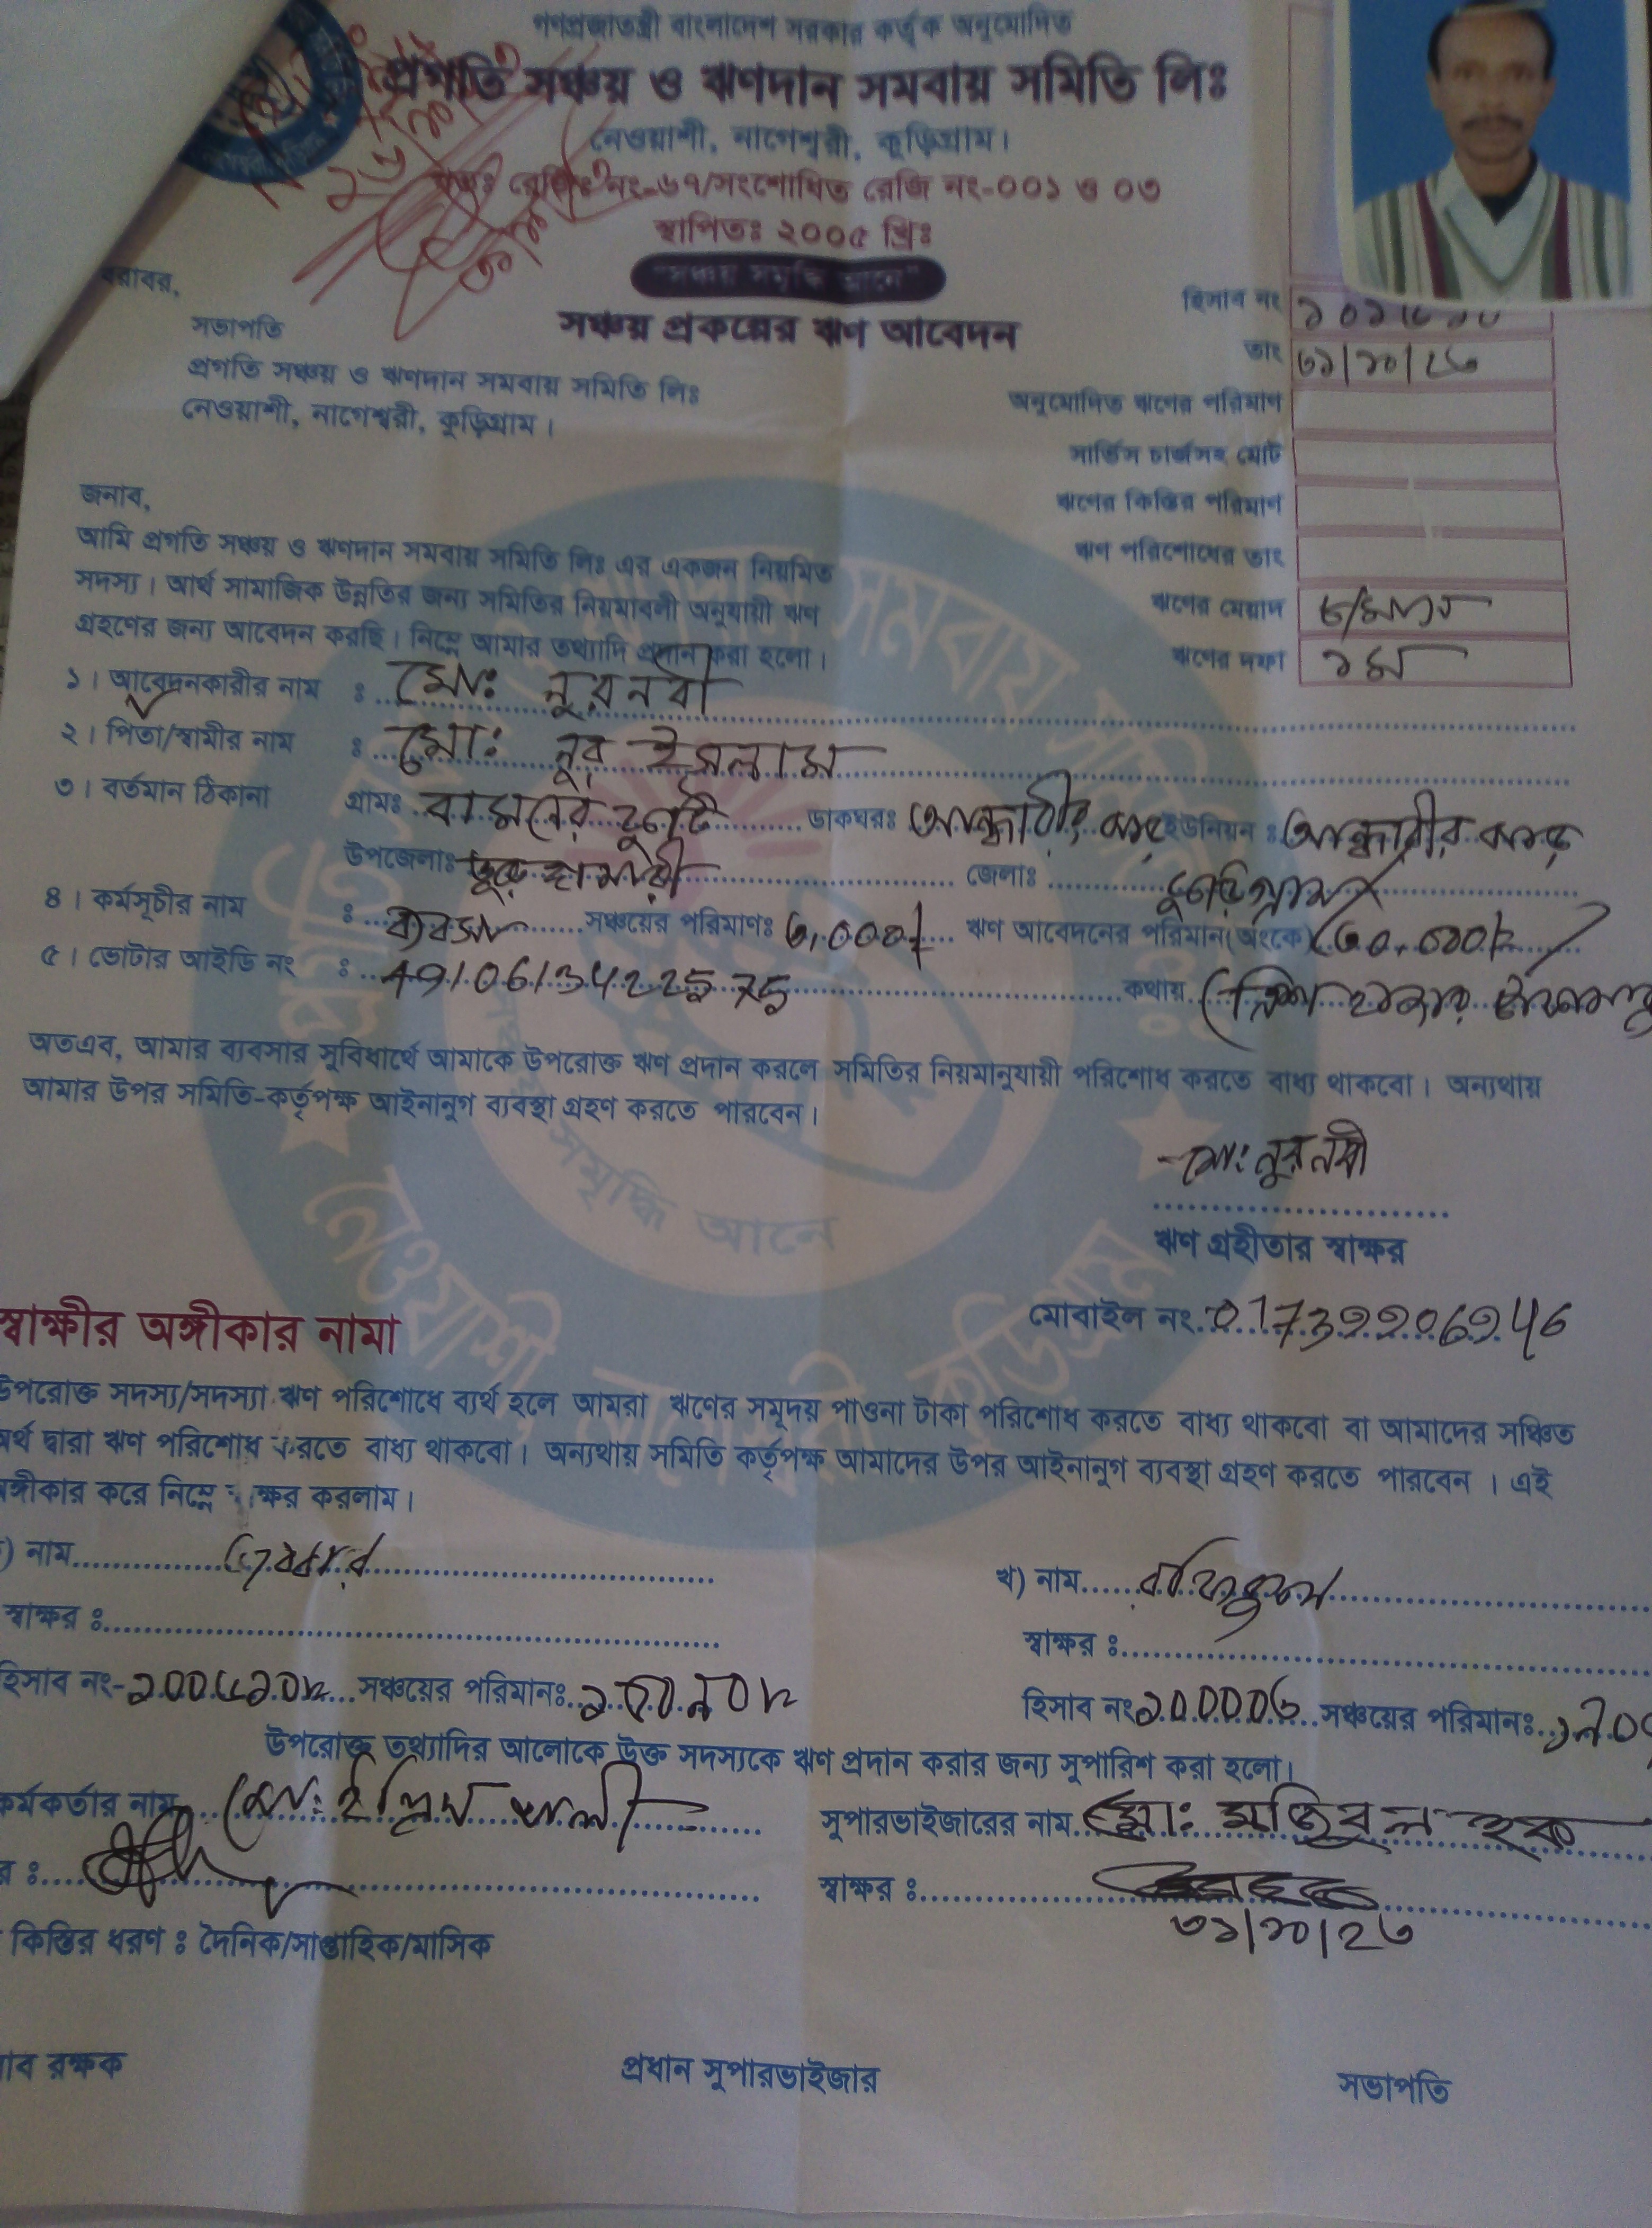 গণপ্রজাতন্ত্রী বাংলাদেশ সরকার কর্তৃক অনুমোদিত
প্রগতি সঞ্চয় ও ঋণদান সমবায় সমিতি লিঃ
নেওয়াশী, নাগেশ্বরী, কুড়িগ্রাম।
রেজিঃ নং-৬৭/সংশোধিত রেজি নং-০০১ ও ০৩
স্থাপিতঃ ২০০৫ খ্রিঃ
"সঞ্চয় সমৃদ্ধি আনে"
সঞ্চয় প্রকল্পের ঋণ আবেদন
বরাবর,
সভাপতি
প্রগতি সঞ্চয় ও ঋণদান সমবায় সমিতি লিঃ
নেওয়াশী, নাগেশ্বরী, কুড়িগ্রাম।
হিসাব নং
তাং ৩১/১০/২৩
অনুমোদিত ঋণের পরিমাণ
সার্ভিস চার্জসহ মোট
ঋণের কিস্তির পরিমাণ
ঋণ পরিশোধের তাং
ঋণের মেয়াদ ৬/মাস
ঋণের দফা ১ম
জনাব,
আমি প্রগতি সঞ্চয় ও ঋণদান সমবায় সমিতি লিঃ এর একজন নিয়মিত
সদস্য। আর্থ সামাজিক উন্নতির জন্য সমিতির নিয়মাবলী অনুযায়ী ঋণ
গ্রহণের জন্য আবেদন করছি। নিম্নে আমার তথ্যাদি প্রদান করা হলো।
১। আবেদনকারীর নাম : মোঃ নুরনবী
২। পিতা/স্বামীর নাম : মোঃ নুর ইসলাম
৩। বর্তমান ঠিকানা গ্রামঃ বামনের কুটি ডাকঘরঃ আন্ধারীর ঝাড় ইউনিয়ন : আন্ধারীর ঝাড়
উপজেলাঃ ভুরুঙ্গামারী জেলাঃ কুড়িগ্রাম
৪। কর্মসূচীর নাম : ব্যবসা সঞ্চয়ের পরিমাণঃ ৩,০০০/ ঋণ আবেদনের পরিমান(অংকে) (৩০,০০০/=)
৫। ভোটার আইডি নং : 4910613422575 কথায় (ত্রিশ হাজার টাকা মাত্র
অতএব, আমার ব্যবসার সুবিধার্থে আমাকে উপরোক্ত ঋণ প্রদান করলে সমিতির নিয়মানুযায়ী পরিশোধ করতে বাধ্য থাকবো। অন্যথায়
আমার উপর সমিতি-কর্তৃপক্ষ আইনানুগ ব্যবস্থা গ্রহণ করতে পারবেন।
মোঃ নুরনবী
ঋণ গ্রহীতার স্বাক্ষর
স্বাক্ষীর অঙ্গীকার নামা
মোবাইল নং
উপরোক্ত সদস্য/সদস্যা ঋণ পরিশোধে ব্যর্থ হলে আমরা ঋণের সমূদয় পাওনা টাকা পরিশোধ করতে বাধ্য থাকবো বা আমাদের সঞ্চিত
অর্থ দ্বারা ঋণ পরিশোধ করতে বাধ্য থাকবো। অন্যথায় সমিতি কর্তৃপক্ষ আমাদের উপর আইনানুগ ব্যবস্থা গ্রহণ করতে পারবেন । এই
অঙ্গীকার করে নিম্নে স্বাক্ষর করলাম।
) নাম
খ) নাম রফিকুল
স্বাক্ষর :
স্বাক্ষর :
হিসাব নং- সঞ্চয়ের পরিমানঃ
হিসাব নং ১০০০০৩ সঞ্চয়ের পরিমানঃ
উপরোক্ত তথ্যাদির আলোকে উক্ত সদস্যকে ঋণ প্রদান করার জন্য সুপারিশ করা হলো।
কর্মকর্তার নাম মোঃ ইদ্রিস আলী
সুপারভাইজারের নাম মোঃ মজিবুল হক
র :
স্বাক্ষর :
৩১/১০/২৩
কিস্তির ধরণ : দৈনিক/সাপ্তাহিক/মাসিক
াব রক্ষক
প্রধান সুপারভাইজার
সভাপতি